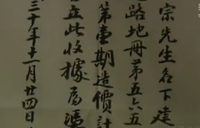 宗先生名下建
路地冊第五六五
第壹期造價計
立此收據為憑
三十年十一月廿四日